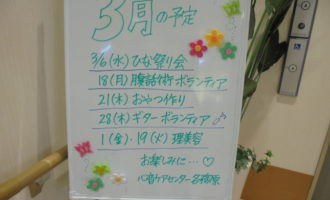 3月の予定
3/6(水)ひな祭り会
18(月)腹話術ボランティア
21(木)おやつ作り
28(木)ギターボランティア♪
1(金)、19(火)理美容
お楽しみに…♡
ケアセンター